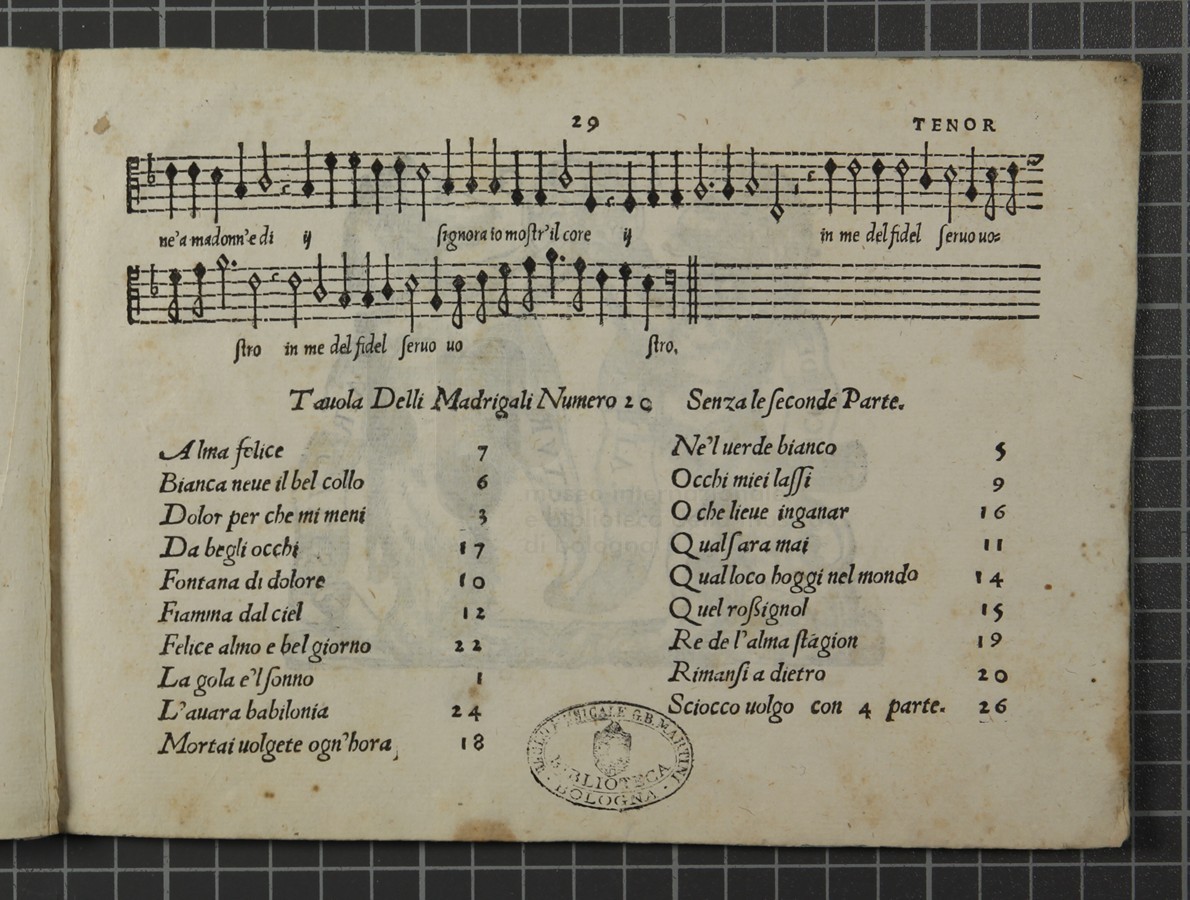 29 TENOR
ne'a madonn'e di ij signora io mostr'il core ij in me del fidel seruo uo=
stro in me del fidel seruo uo stro.
Tauola Delli Madrigali Numero 20 Senza le seconde Parte.
Alma felice 7
Bianca neue il bel collo 6
Dolor per che mi meni 3
Da begli occhi 17
Fontana di dolore 10
Fiamma dal ciel 12
Felice almo e bel giorno 22
La gola e'l sonno 1
L'auara babilonia 24
Mortai uolgete ogn'hora 18
Ne'l uerde bianco 5
Occhi miei lassi 9
O che lieue inganar 16
Qual sara mai 11
Qual loco hoggi nel mondo 14
Quel rossignol 15
Re de l'alma stagion 19
Rimansi a dietro 20
Sciocco uolgo con 4 parte. 26
museo internazionale
e biblioteca
di bologna
MUSICALE G.B. MARTINI
BIBLIOTECA
BOLOGNA